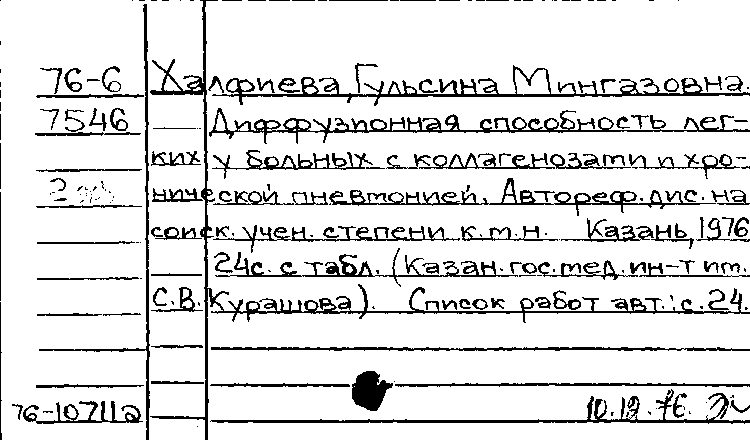 76-6 Халфиева, Гульсина Мингазовна.
7546 Диффузионная способность лег-
ких у больных с коллагенозами и хро-
нической пневмонией. Автореф. дис. на
соиск. учен. степени к.м.н. Казань, 1976
24с. с табл. (Казан. гос. мед. ин-т им.
С.В. Курашова). Список работ авт.: с. 24.
76-10711а 10.12.76.